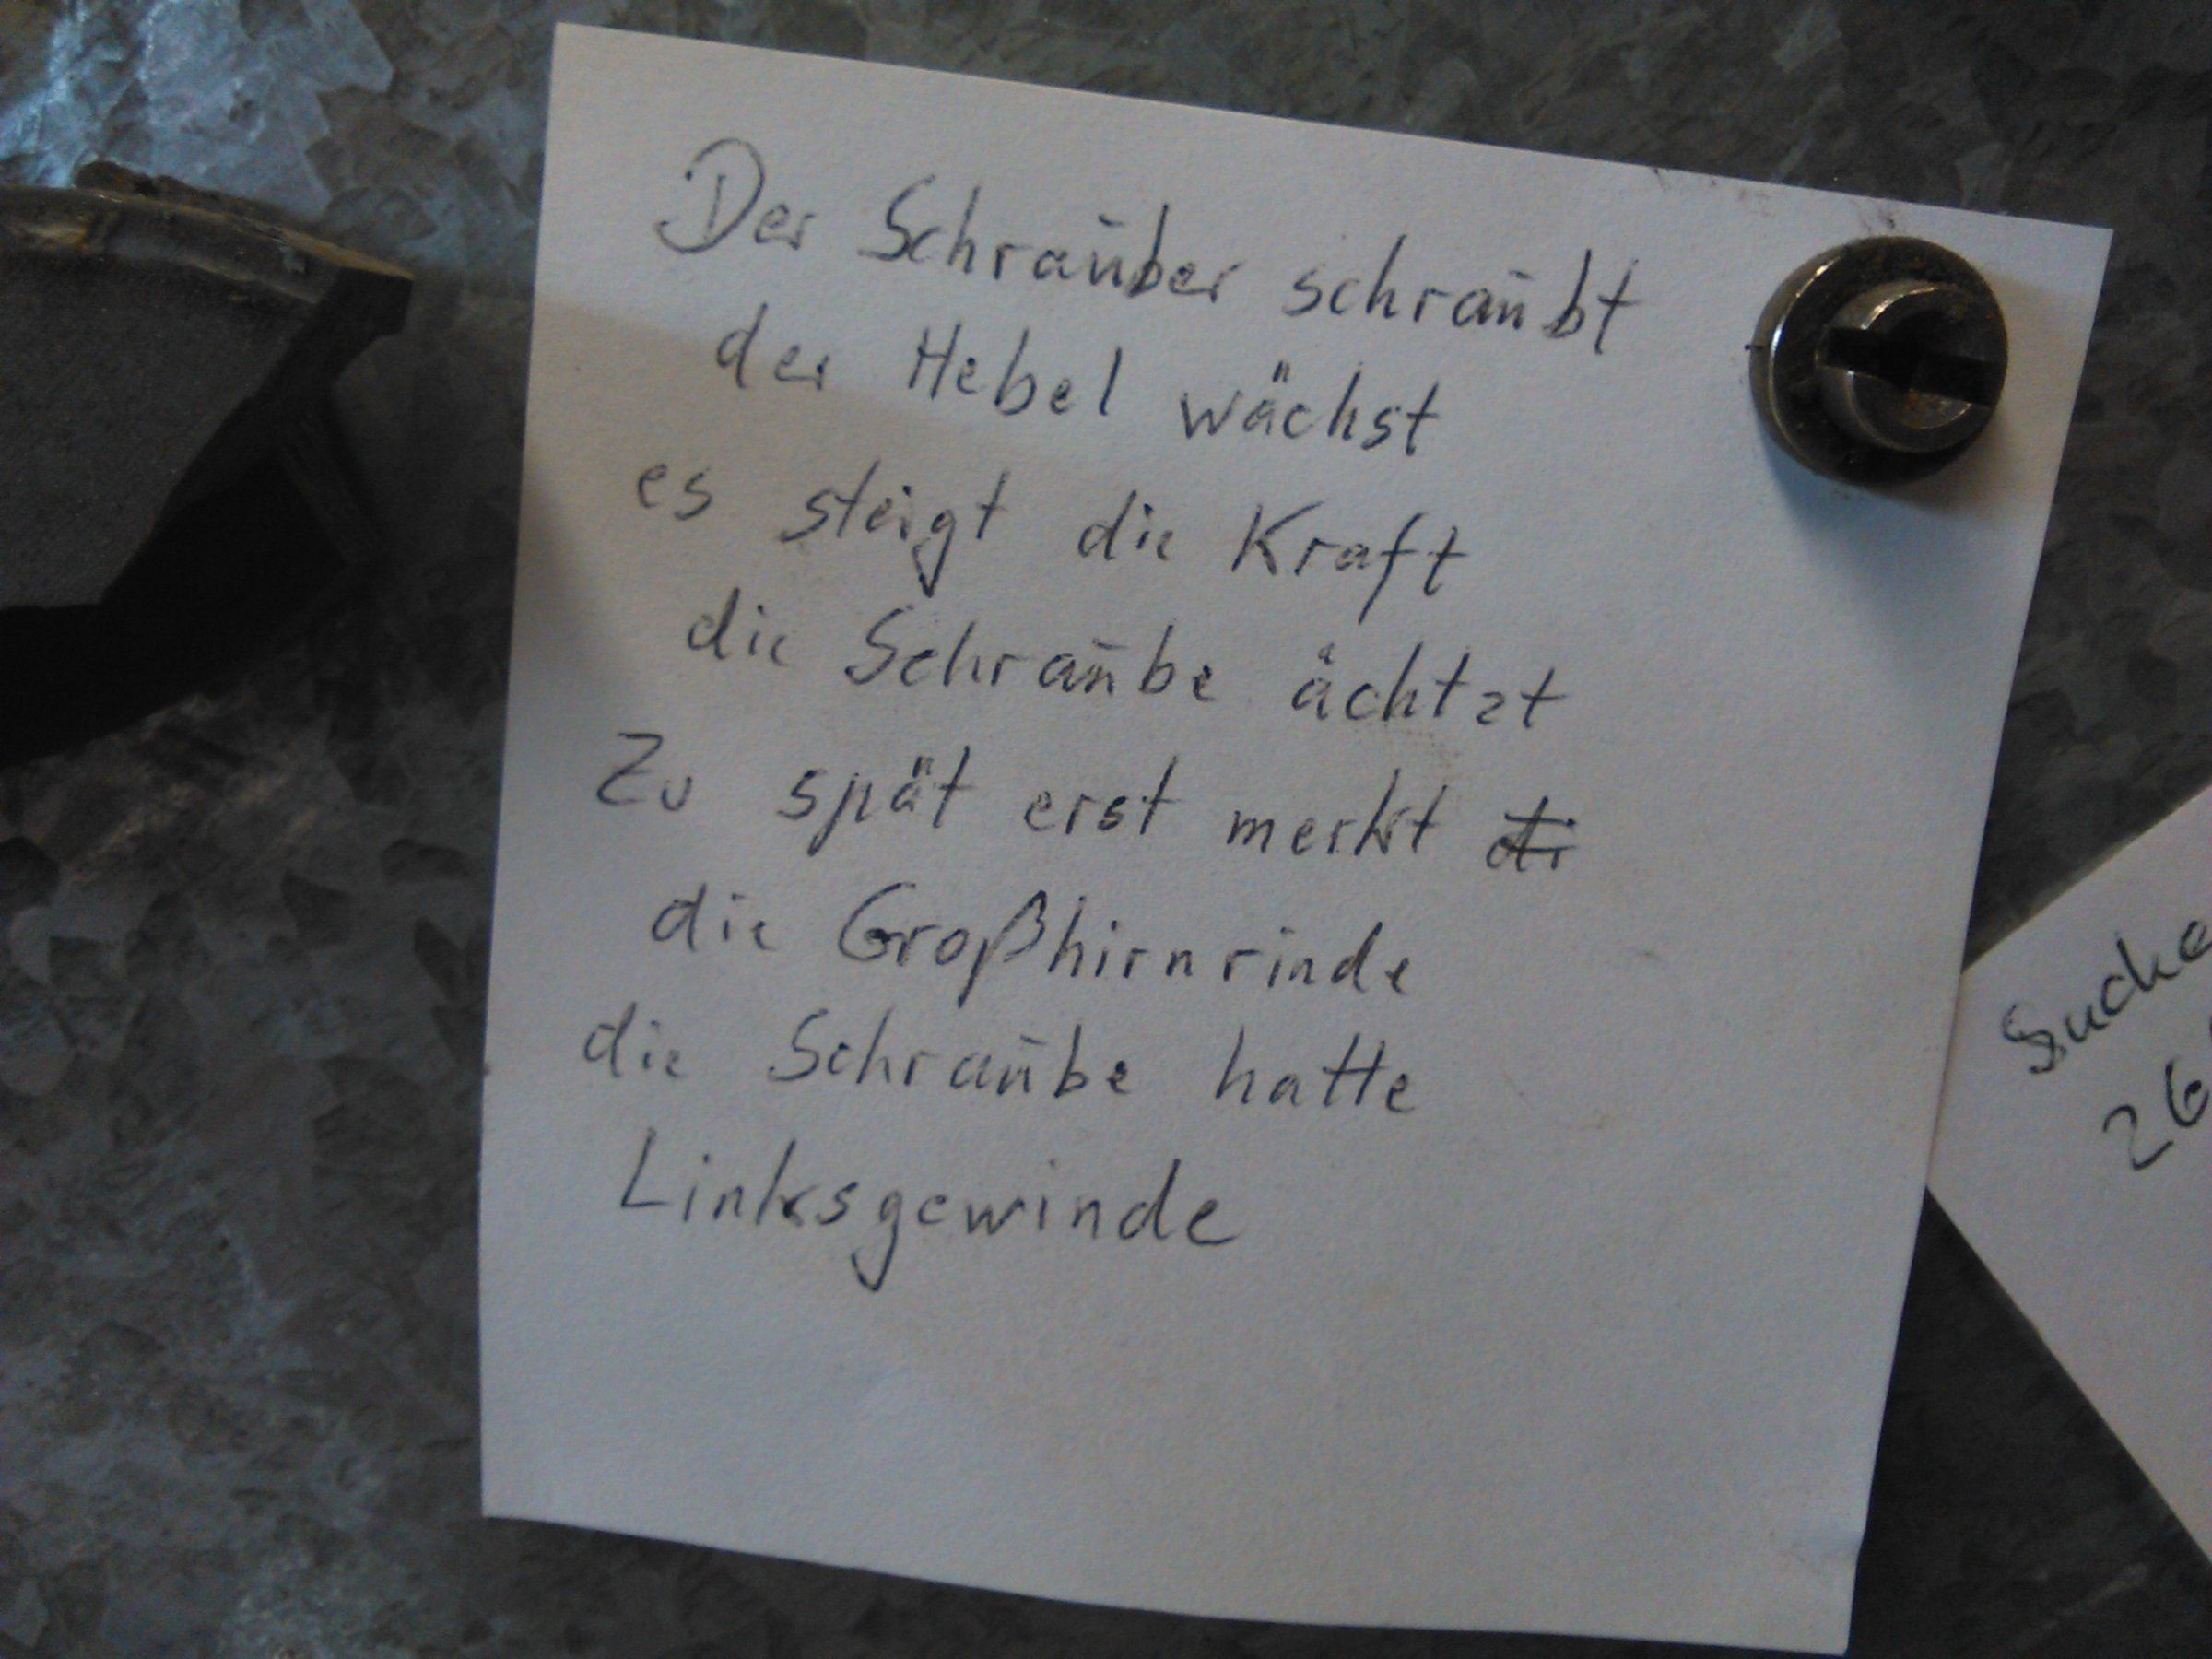 Der Schrauber schraubt
der Hebel wächst
es steigt die Kraft
die Schraube ächtzt
Zu spät erst merkt di
die Großhirnrinde
die Schraube hatte
Linksgewinde
Suche
26